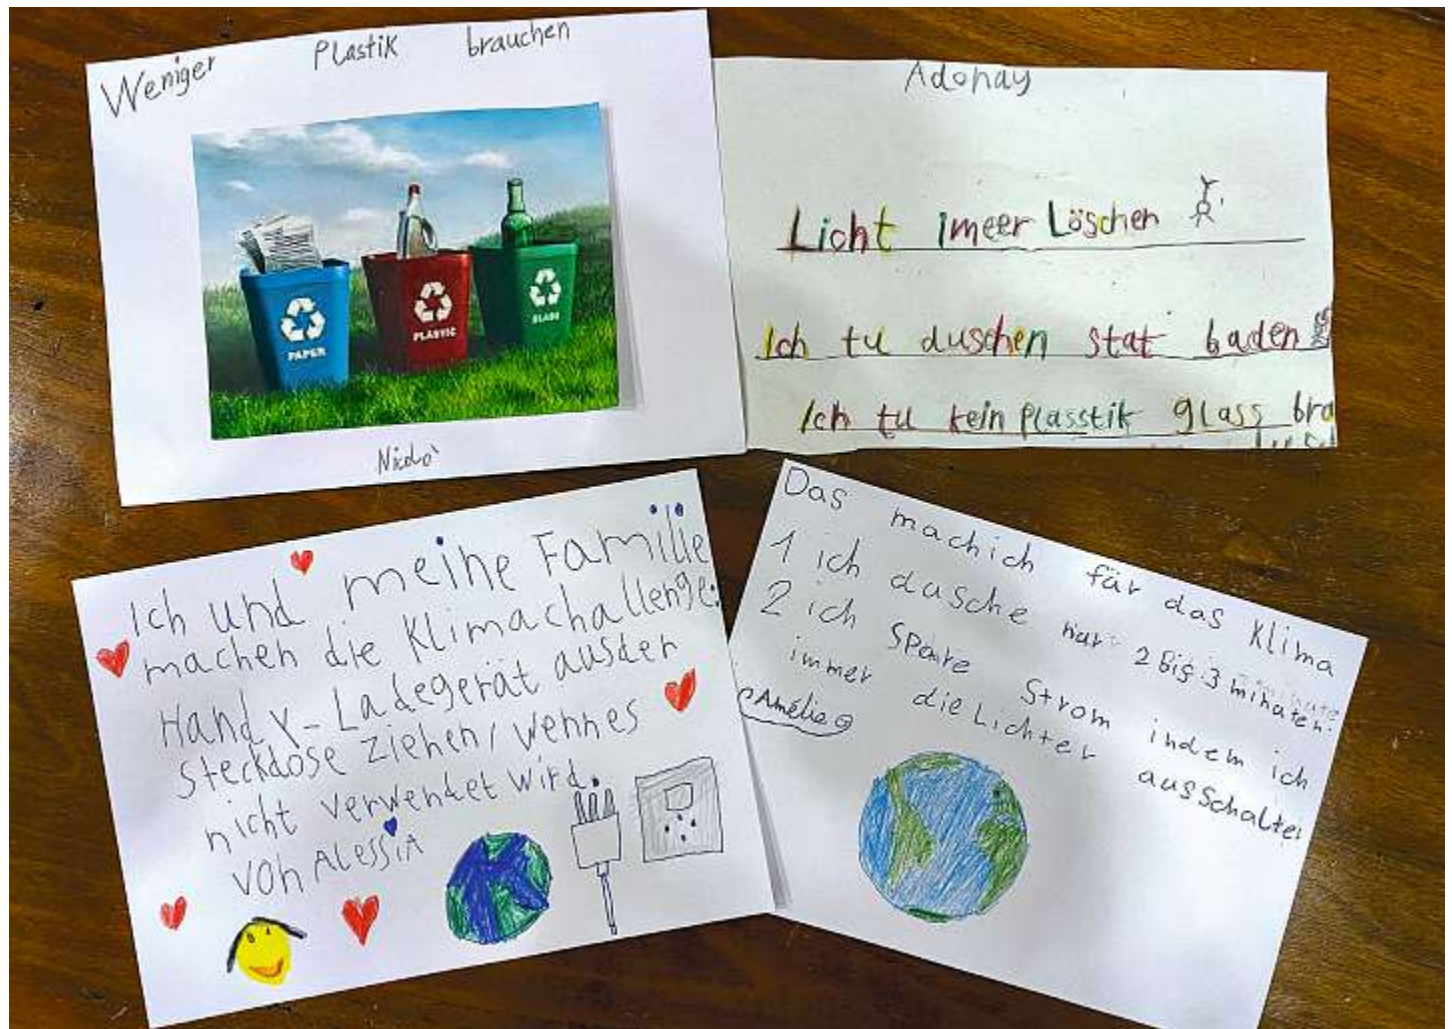 Weniger Plastik brauchen
PAPER
PLASTIC
GLASS
Nicolò
Adonay
Licht imeer Löschen
Ich tu duschen stat baden
Ich tu kein plasstik glass bra
Ich und meine Familie
machen die Klimachallenge:
Handy-Ladegerät ausder
Steckdose ziehen, wennes
nicht verwendet wird.
von ALESSiA
Das machich für das Klima
1 ich dusche nur 2 bis 3 minuten.
2 ich spare Strom indem ich
immer die Lichter ausschalte
Amélie